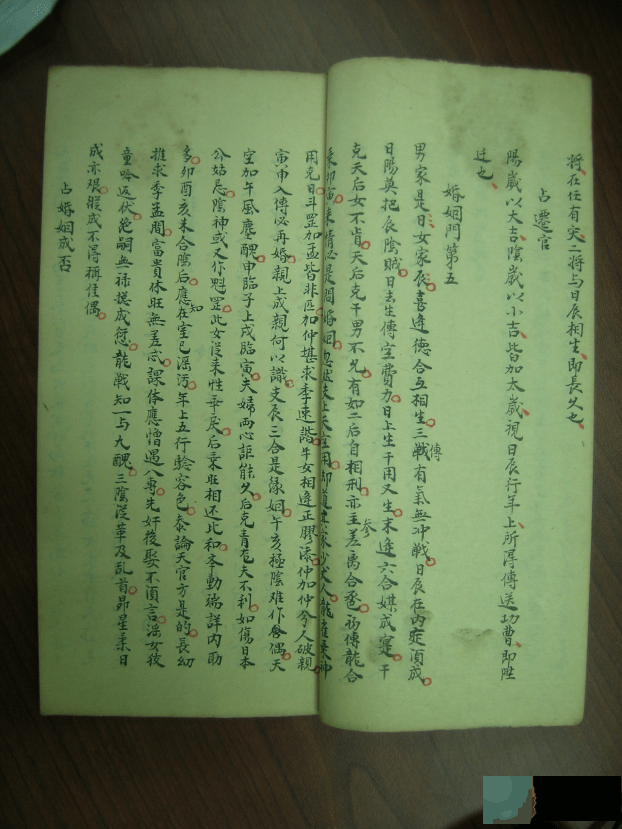 將在任有定一將与日辰相生即長久也
占遷官
陽歲以大吉陰歲以小吉皆加太歲視日辰行年上所得傳送功曹即陞
迁也
婚姻門第五
男家是日女家辰喜逢德合互相生三傳有氣無冲戰日辰在内定須成
日陽莫把辰陰賊日去生傳空費力日上生干用又生末逢六合媒成寔干
克天后女不肯天后克干男不允有如二后自相刑亦主差离合
用克日斗罡加孟皆非匹加仲堪求季速諧牛女相逢正膠漆仲加仲兮人破親
寅申入傳必再婚親上成親何以識支辰三合是緣姻午亥極陰难作合偶天
空加午風塵醜申臨子上戌臨寅夫婦两心詎能久后克青龙夫不利如傷日本
公姑忌陰神或又作魁罡此女從来性乖戾后乘旺相还比和夲動端詳内助
多卯酉亥未合陰后應知在室已淫污年上五行驗容色泰論天官方是的長幼
推求季孟間富貴休旺無差忒課体應憎遇八專先奸後娶不須言淫女狡
童吟返伏絶嗣無禄援成愆龍戰知一与九醜三陰從革及乱首昴星柔日
成亦艰縱成不得稱佳偶
占婚姻成否